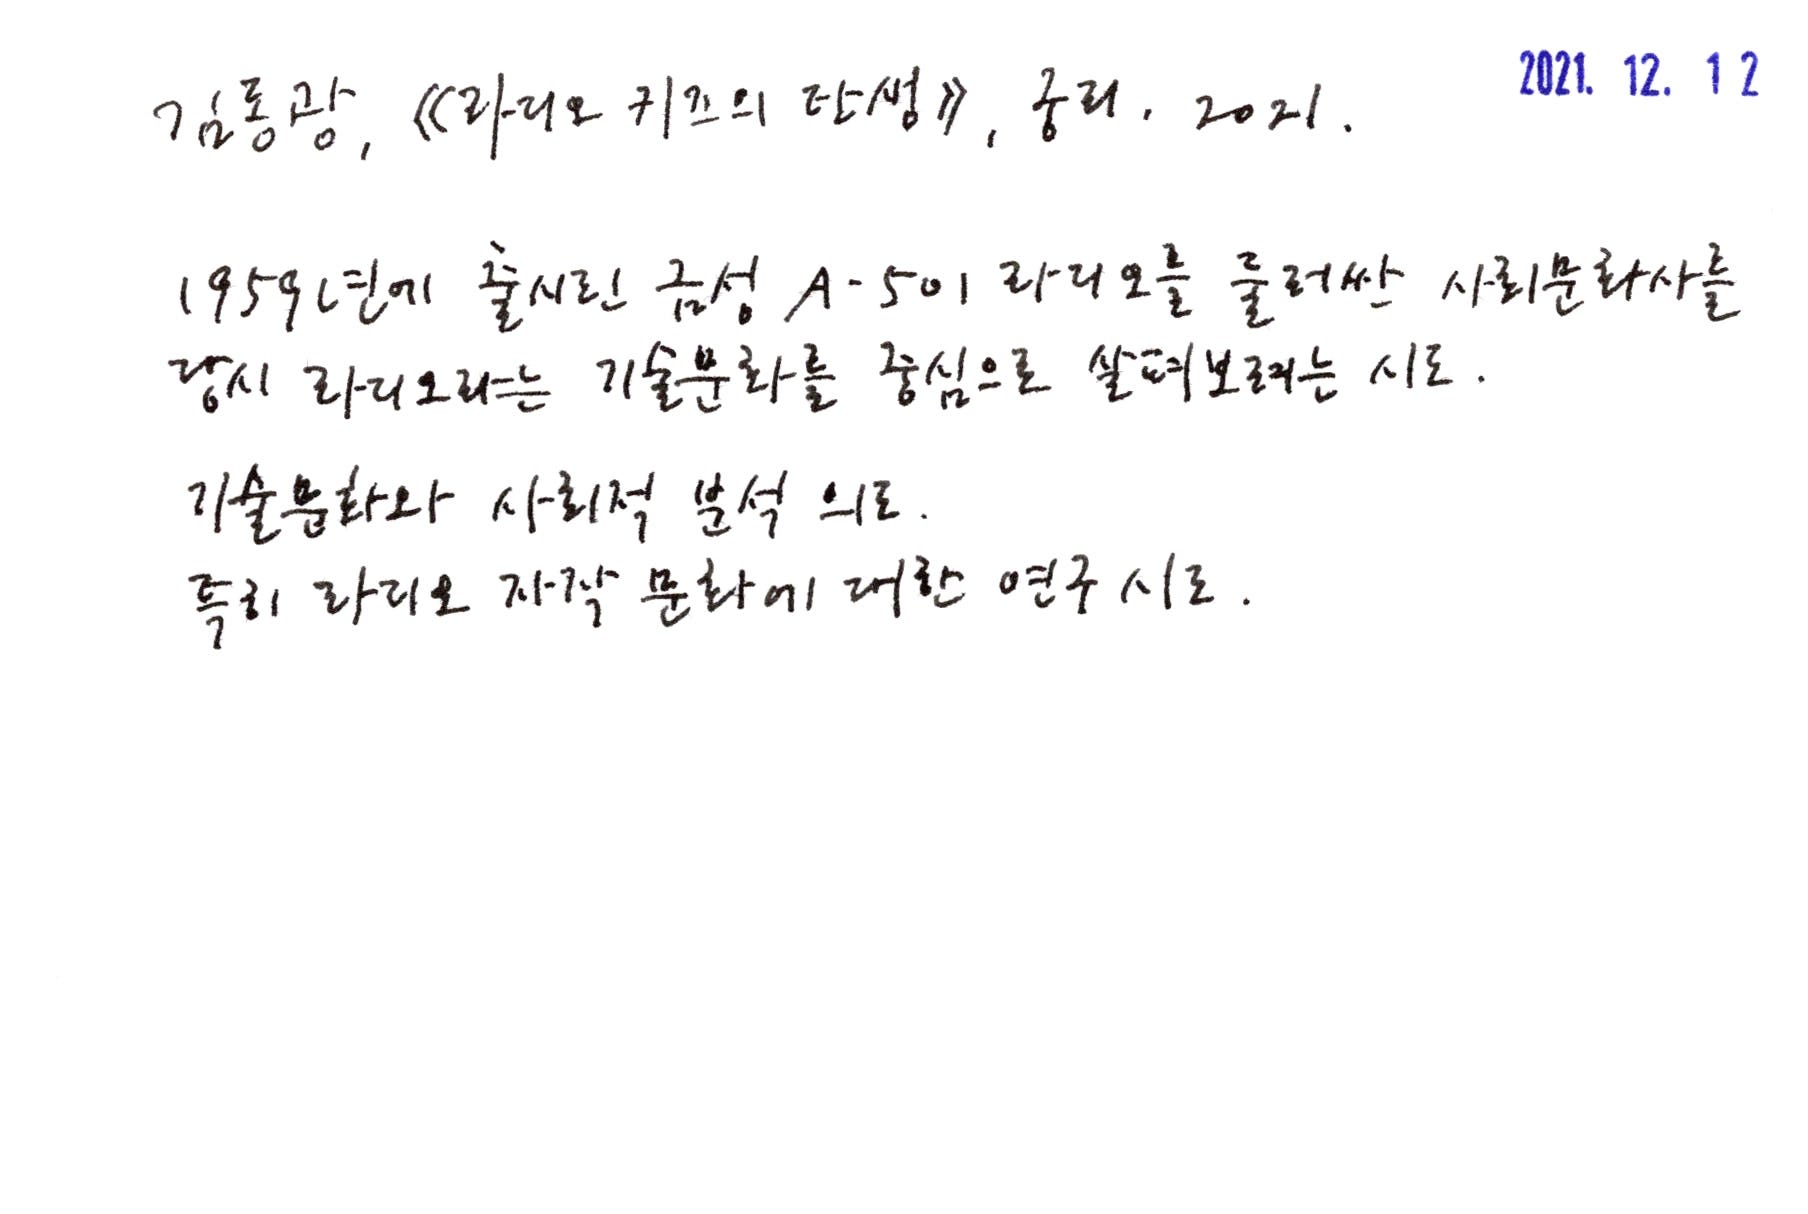 2021. 12. 12
김동광, 《라디오 키즈의 탄생》, 궁리, 2021.
1959년에 출시된 금성 A-501 라디오를 둘러싼 사회문화사를
당시 라디오라는 기술문화를 중심으로 살펴보려는 시도.
기술문화와 사회적 분석 의도.
특히 라디오 자작 문화에 대한 연구 시도.